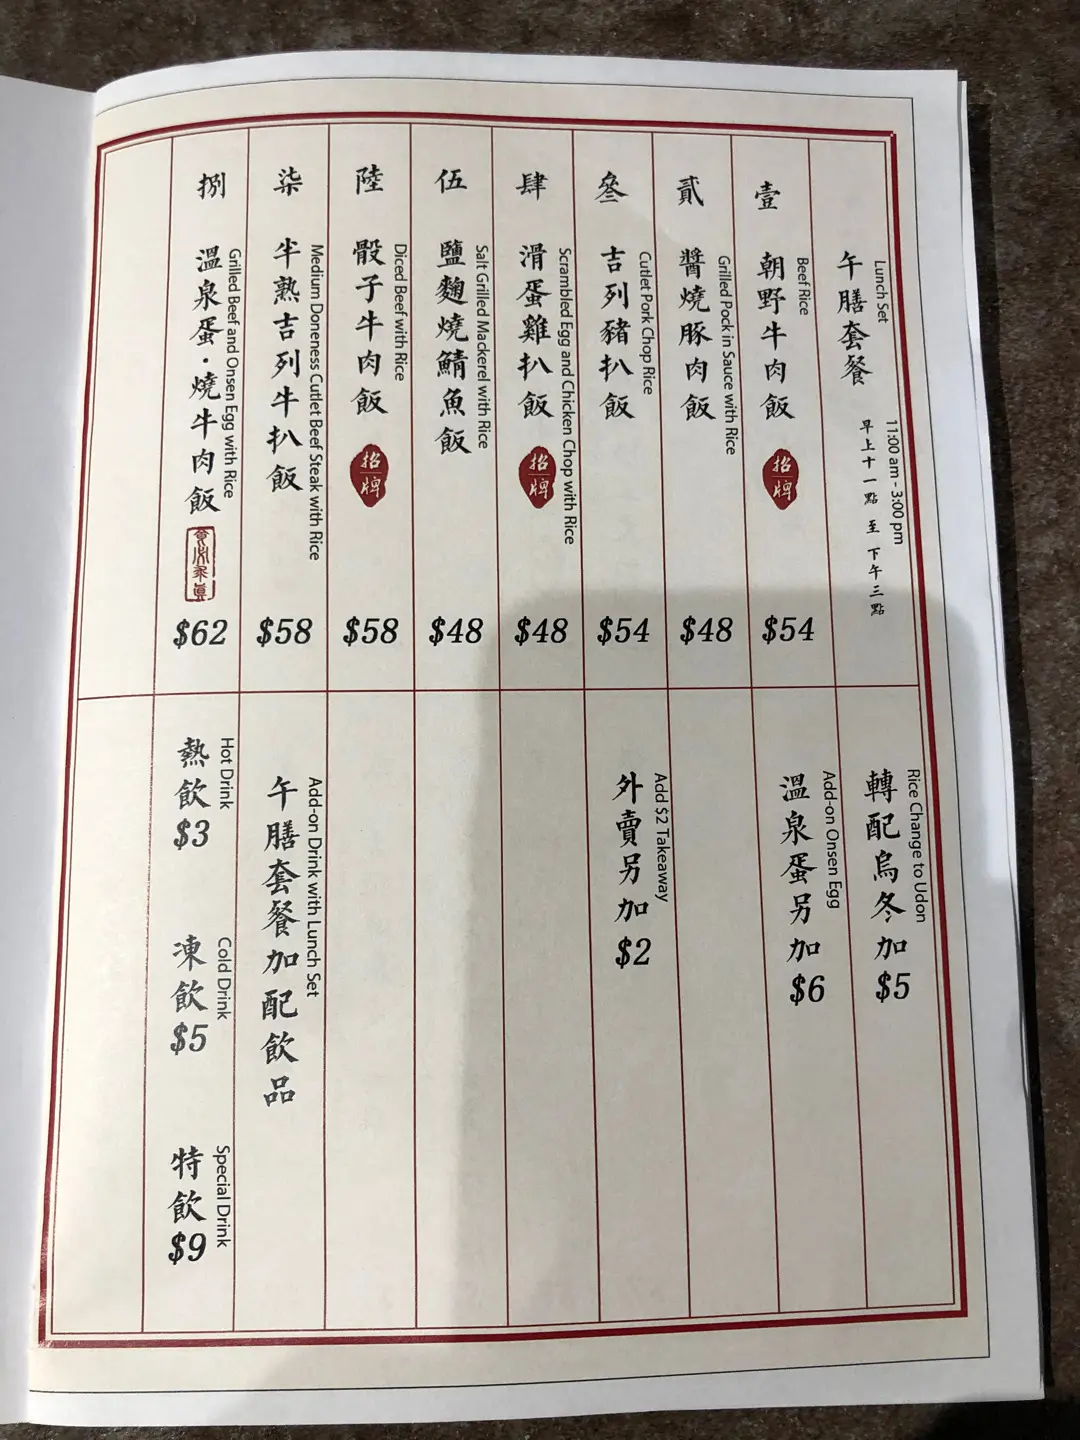 Lunch Set
午膳套餐
11:00 am - 3:00 pm
早上十一點 至 下午三點
壹
Beef Rice
朝野牛肉飯
招牌
$54
貳
Grilled Pock in Sauce with Rice
醬燒豚肉飯
$48
叄
Cutlet Pork Chop Rice
吉列豬扒飯
$54
肆
Scrambled Egg and Chicken Chop with Rice
滑蛋雞扒飯
招牌
$48
伍
Salt Grilled Mackerel with Rice
鹽麴燒鯖魚飯
$48
陸
Diced Beef with Rice
骰子牛肉飯
招牌
$58
柒
Medium Doneness Cutlet Beef Steak with Rice
半熟吉列牛扒飯
$58
捌
Grilled Beef and Onsen Egg with Rice
溫泉蛋·燒牛肉飯
$62
Rice Change to Udon
轉配烏冬加$5
Add-on Onsen Egg
溫泉蛋另加$6
Add $2 Takeaway
外賣另加$2
Add-on Drink with Lunch Set
午膳套餐加配飲品
Hot Drink
熱飲$3
Cold Drink
凍飲$5
Special Drink
特飲$9